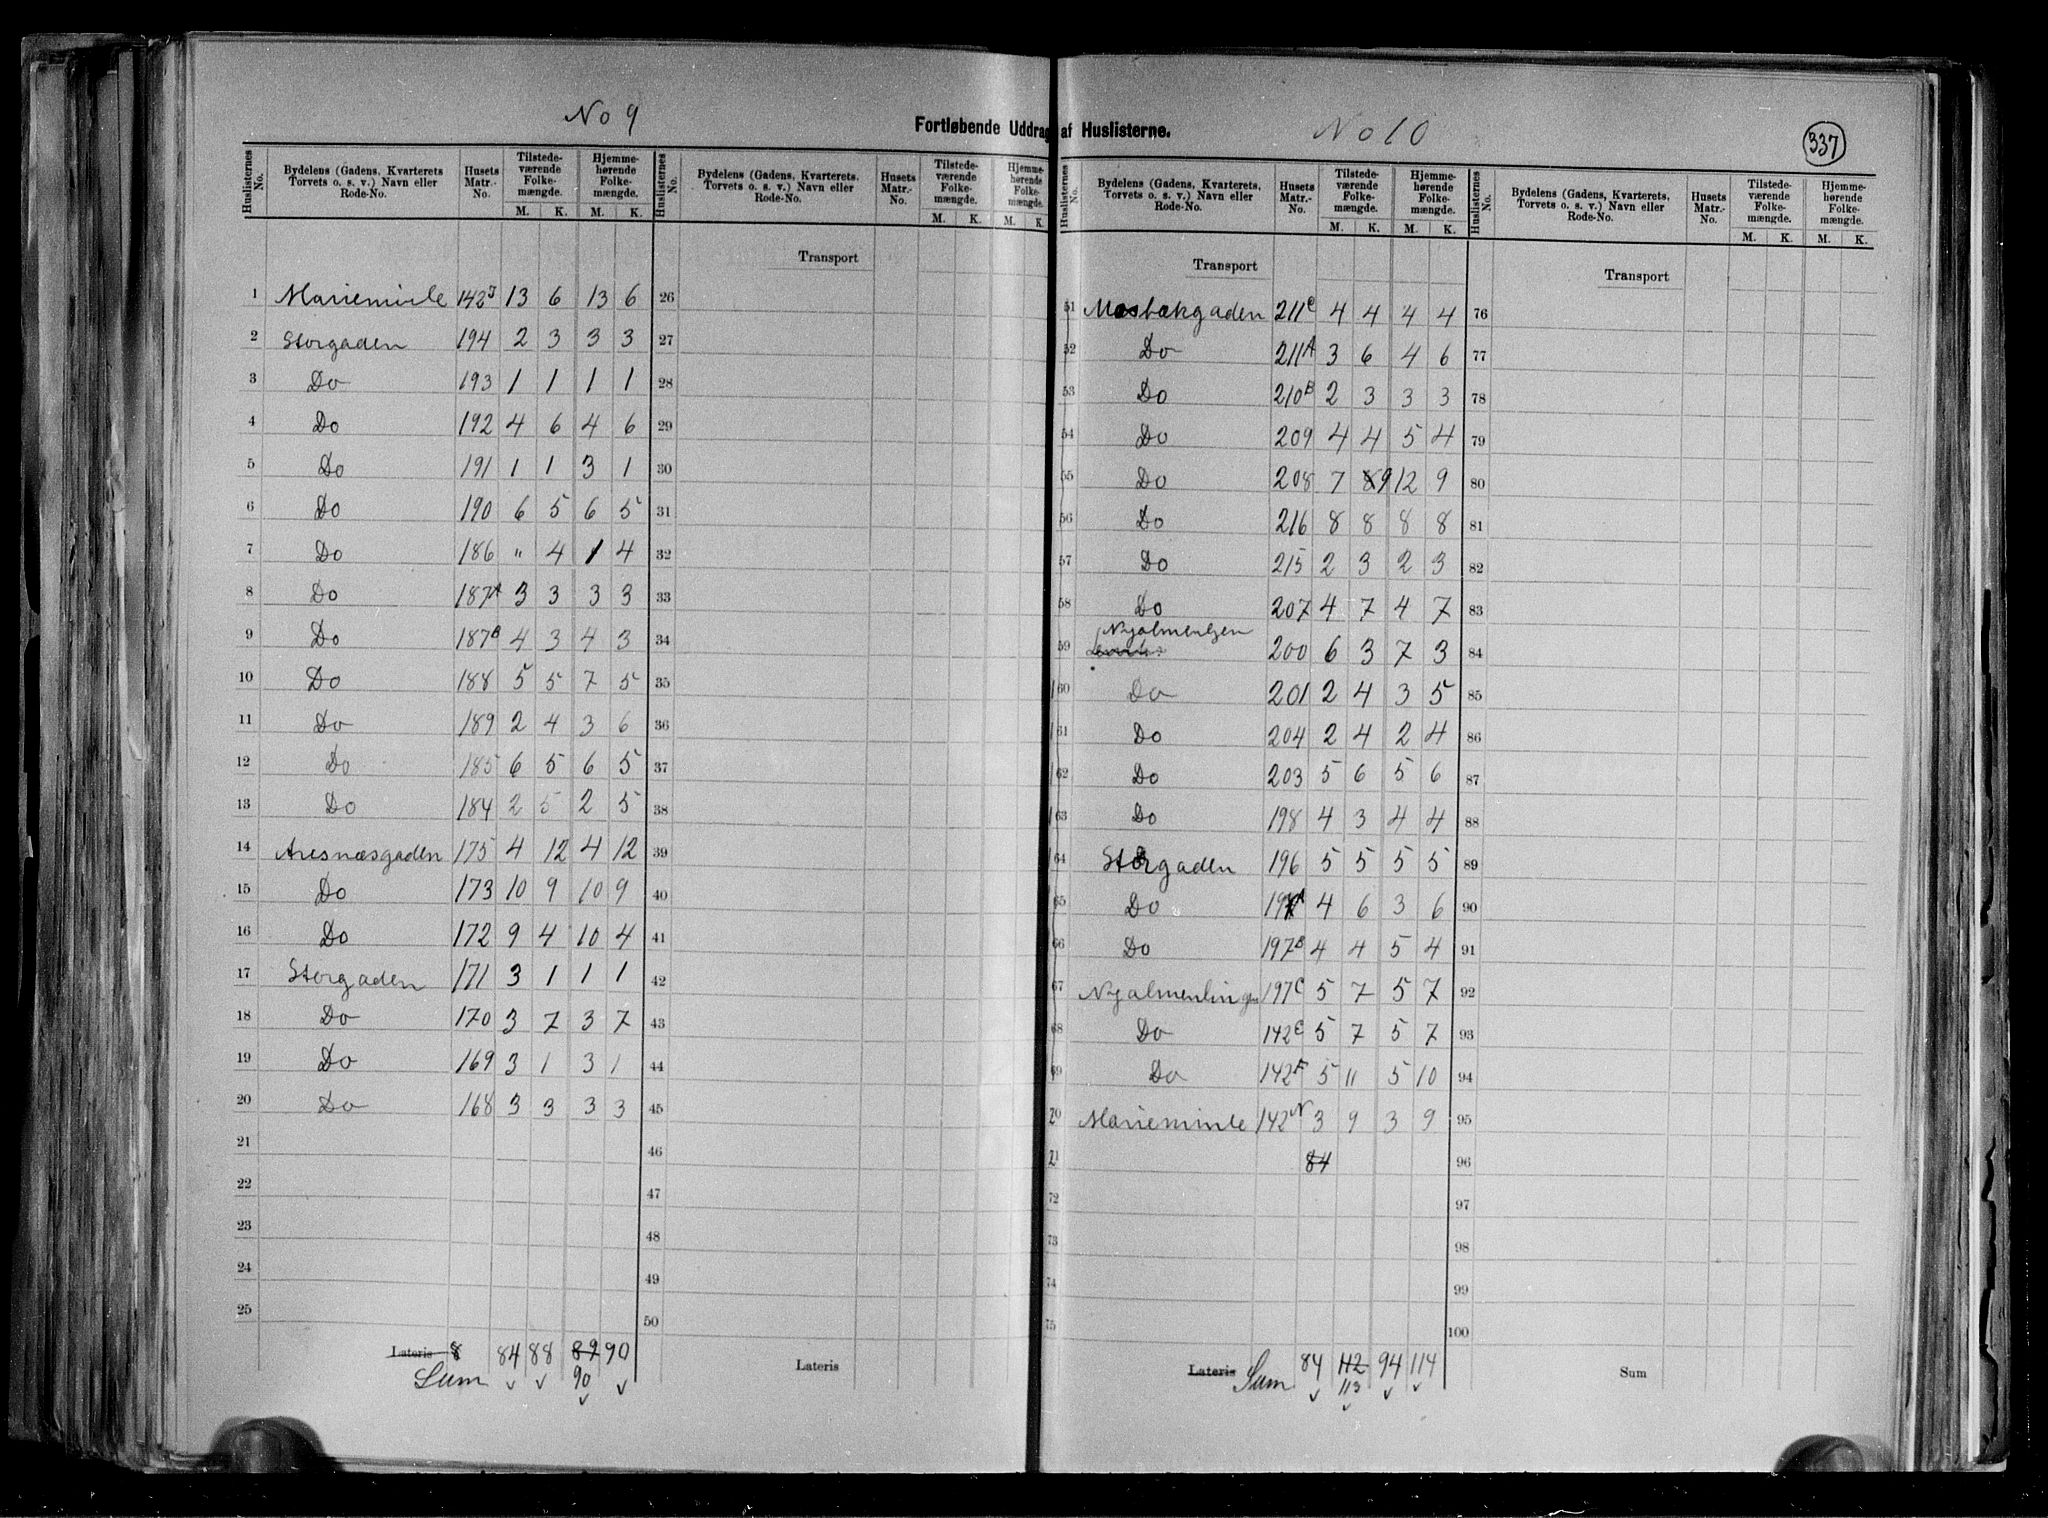 No 9
Fortløbende Uddrag af Huslisterne.
No 10
337
Huslisternes No.
Bydelens (Gadens, Kvarterets Torvets o. s. v.) Navn eller Rode-No.
Husets Matr.-No.
Tilstede-værende Folke-mængde.
Hjemme-hørende Folke-mængde.
M. K. M. K.
Huslisternes No.
Bydelens (Gadens, Kvarterets, Torvets o. s. v.) Navn eller Rode-No.
Husets Matr.-No.
Tilstede-værende Folke-mængde.
Hjemme-hørende Folke-mængde.
M. K. M. K.
Transport
1 Marieminde 142J 13 6 13 6 26
2 Storgaden 194 2 3 3 3 27
3 Do 193 1 1 1 1 28
4 Do 192 4 6 4 6 29
5 Do 191 1 1 3 1 30
6 Do 190 6 5 6 5 31
7 Do 186 " 4 1 4 32
8 Do 187A 3 3 3 3 33
9 Do 187B 4 3 4 3 34
10 Do 188 5 5 7 5 35
11 Do 189 2 4 3 6 36
12 Do 185 6 5 6 5 37
13 Do 184 2 5 2 5 38
14 Aresnæsgaden 175 4 12 4 12 39
15 Do 173 10 9 10 9 40
16 Do 172 9 4 10 4 41
17 Storgaden 171 3 1 1 1 42
18 Do 170 3 7 3 7 43
19 Do 169 3 1 3 1 44
20 Do 168 3 3 3 3 45
21 46
22 47
23 48
24 49
25 50
Lateris 8 84 88 89 90
Sum 90
Lateris
Huslisternes No.
Bydelens (Gadens, Kvarterets, Torvets o. s. v.) Navn eller Rode-No.
Husets Matr.-No.
Tilstede-værende Folke-mængde.
Hjemme-hørende Folke-mængde.
M. K. M. K.
Huslisternes No.
Bydelens (Gadens, Kvarterets, Torvets o. s. v.) Navn eller Rode-No.
Husets Matr.-No.
Tilstede-værende Folke-mængde.
Hjemme-hørende Folke-mængde.
M. K. M. K.
Transport
Transport
51 Mosbækgaden 211C 4 4 4 4 76
52 Do 211A 3 6 4 6 77
53 Do 210B 2 3 3 3 78
54 Do 209 4 4 5 4 79
55 Do 208 7 8 9 12 9 80
56 Do 216 8 8 8 8 81
57 Do 215 2 3 2 3 82
58 Do 207 4 7 4 7 83
59 200 6 3 7 3 84
60 Do 201 2 4 3 5 85
61 Do 204 2 4 2 4 86
62 Do 203 5 6 5 6 87
63 Do 198 4 3 4 4 88
64 Storgaden 196 5 5 5 5 89
65 Do 197A 4 6 3 6 90
66 Do 197B 4 4 5 4 91
67 197C 5 7 5 7 92
68 Do 142E 5 7 5 7 93
69 Do 142F 5 11 5 10 94
70 Marieminde 142N 3 9 3 9 95
71 84 96
72 97
73 98
74 99
75 100
Lateris Sum 84 112 94 114
113
Sum